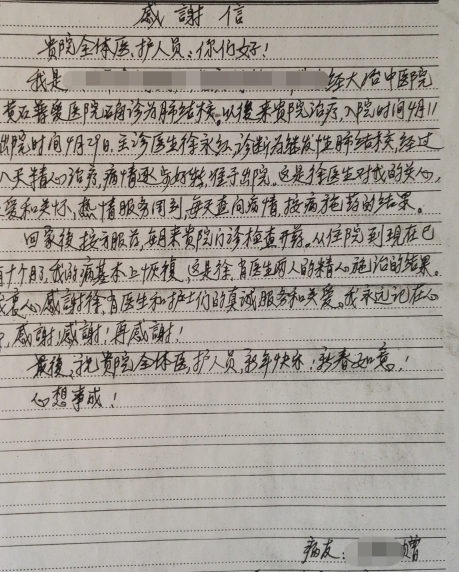 感謝信
贵院全体医、护人员：你们好！
我是 经大冶中医院
黄石普爱医院确诊为肺结核。以後来贵院治疗，入院时间4月11
出院时间4月29日，主诊医生徐永红，诊断为继发性肺结核，经过
八天精心治疗，病情逐步好转，准于出院。这是徐医生对我的关心，
爱和关怀，热情服务周到，每天查问病情，按病施药的结果。
回家後，按方服药，每月来贵院门诊检查开药。从住院到现在已
有十个月，我的病基本上恢復，这是徐、肖医生两人的精心施治的结果。
我衷心感謝徐、肖医生和护士们的真誠服务和关爱。我永远记在心
中，感謝！感謝！再感謝！
最後，祝贵院全体医、护人员，新年快乐，新春如意！
心想事成！
病友： 赠